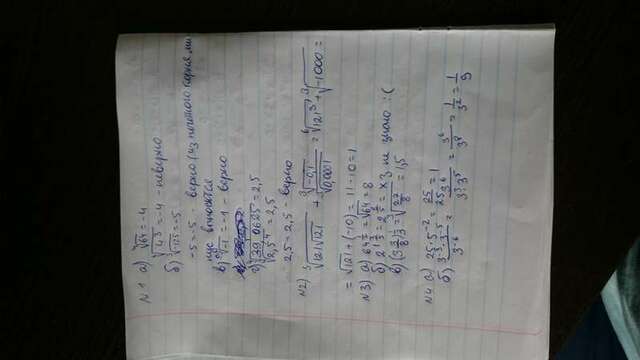 №1 а) ∛64 = -4
∛4³ = -4 - неверно
б) ∛-125 = -5
-5 = -5 - верно (из нечетного корня ми
нус выносятся
в) √-1 = -1 - верно
г) ⁴√39,0625 = 2,5
⁴√2,5⁴ = 2,5
2,5 = 2,5 - верно
№2) ³√121√121 + ³√-0,1 / ³√0,0001 = ⁶√121³ + ³√-1000 =
= √121 + (-10) = 11 - 10 = 1
№3) а) 64^½ = √64 = 8
б) 2 = 2 = хз не знаю :(
в) (3 3/8)^⅓ = ³√27/8 = 1,5
№4 а) 25·5⁻² = 25/25 = 1
б) 3⁻³·3⁻⁵ / 3⁻⁶ = 3⁶ / 3³·3⁵ = 3⁶/3⁸ = 1/3² = 1/9